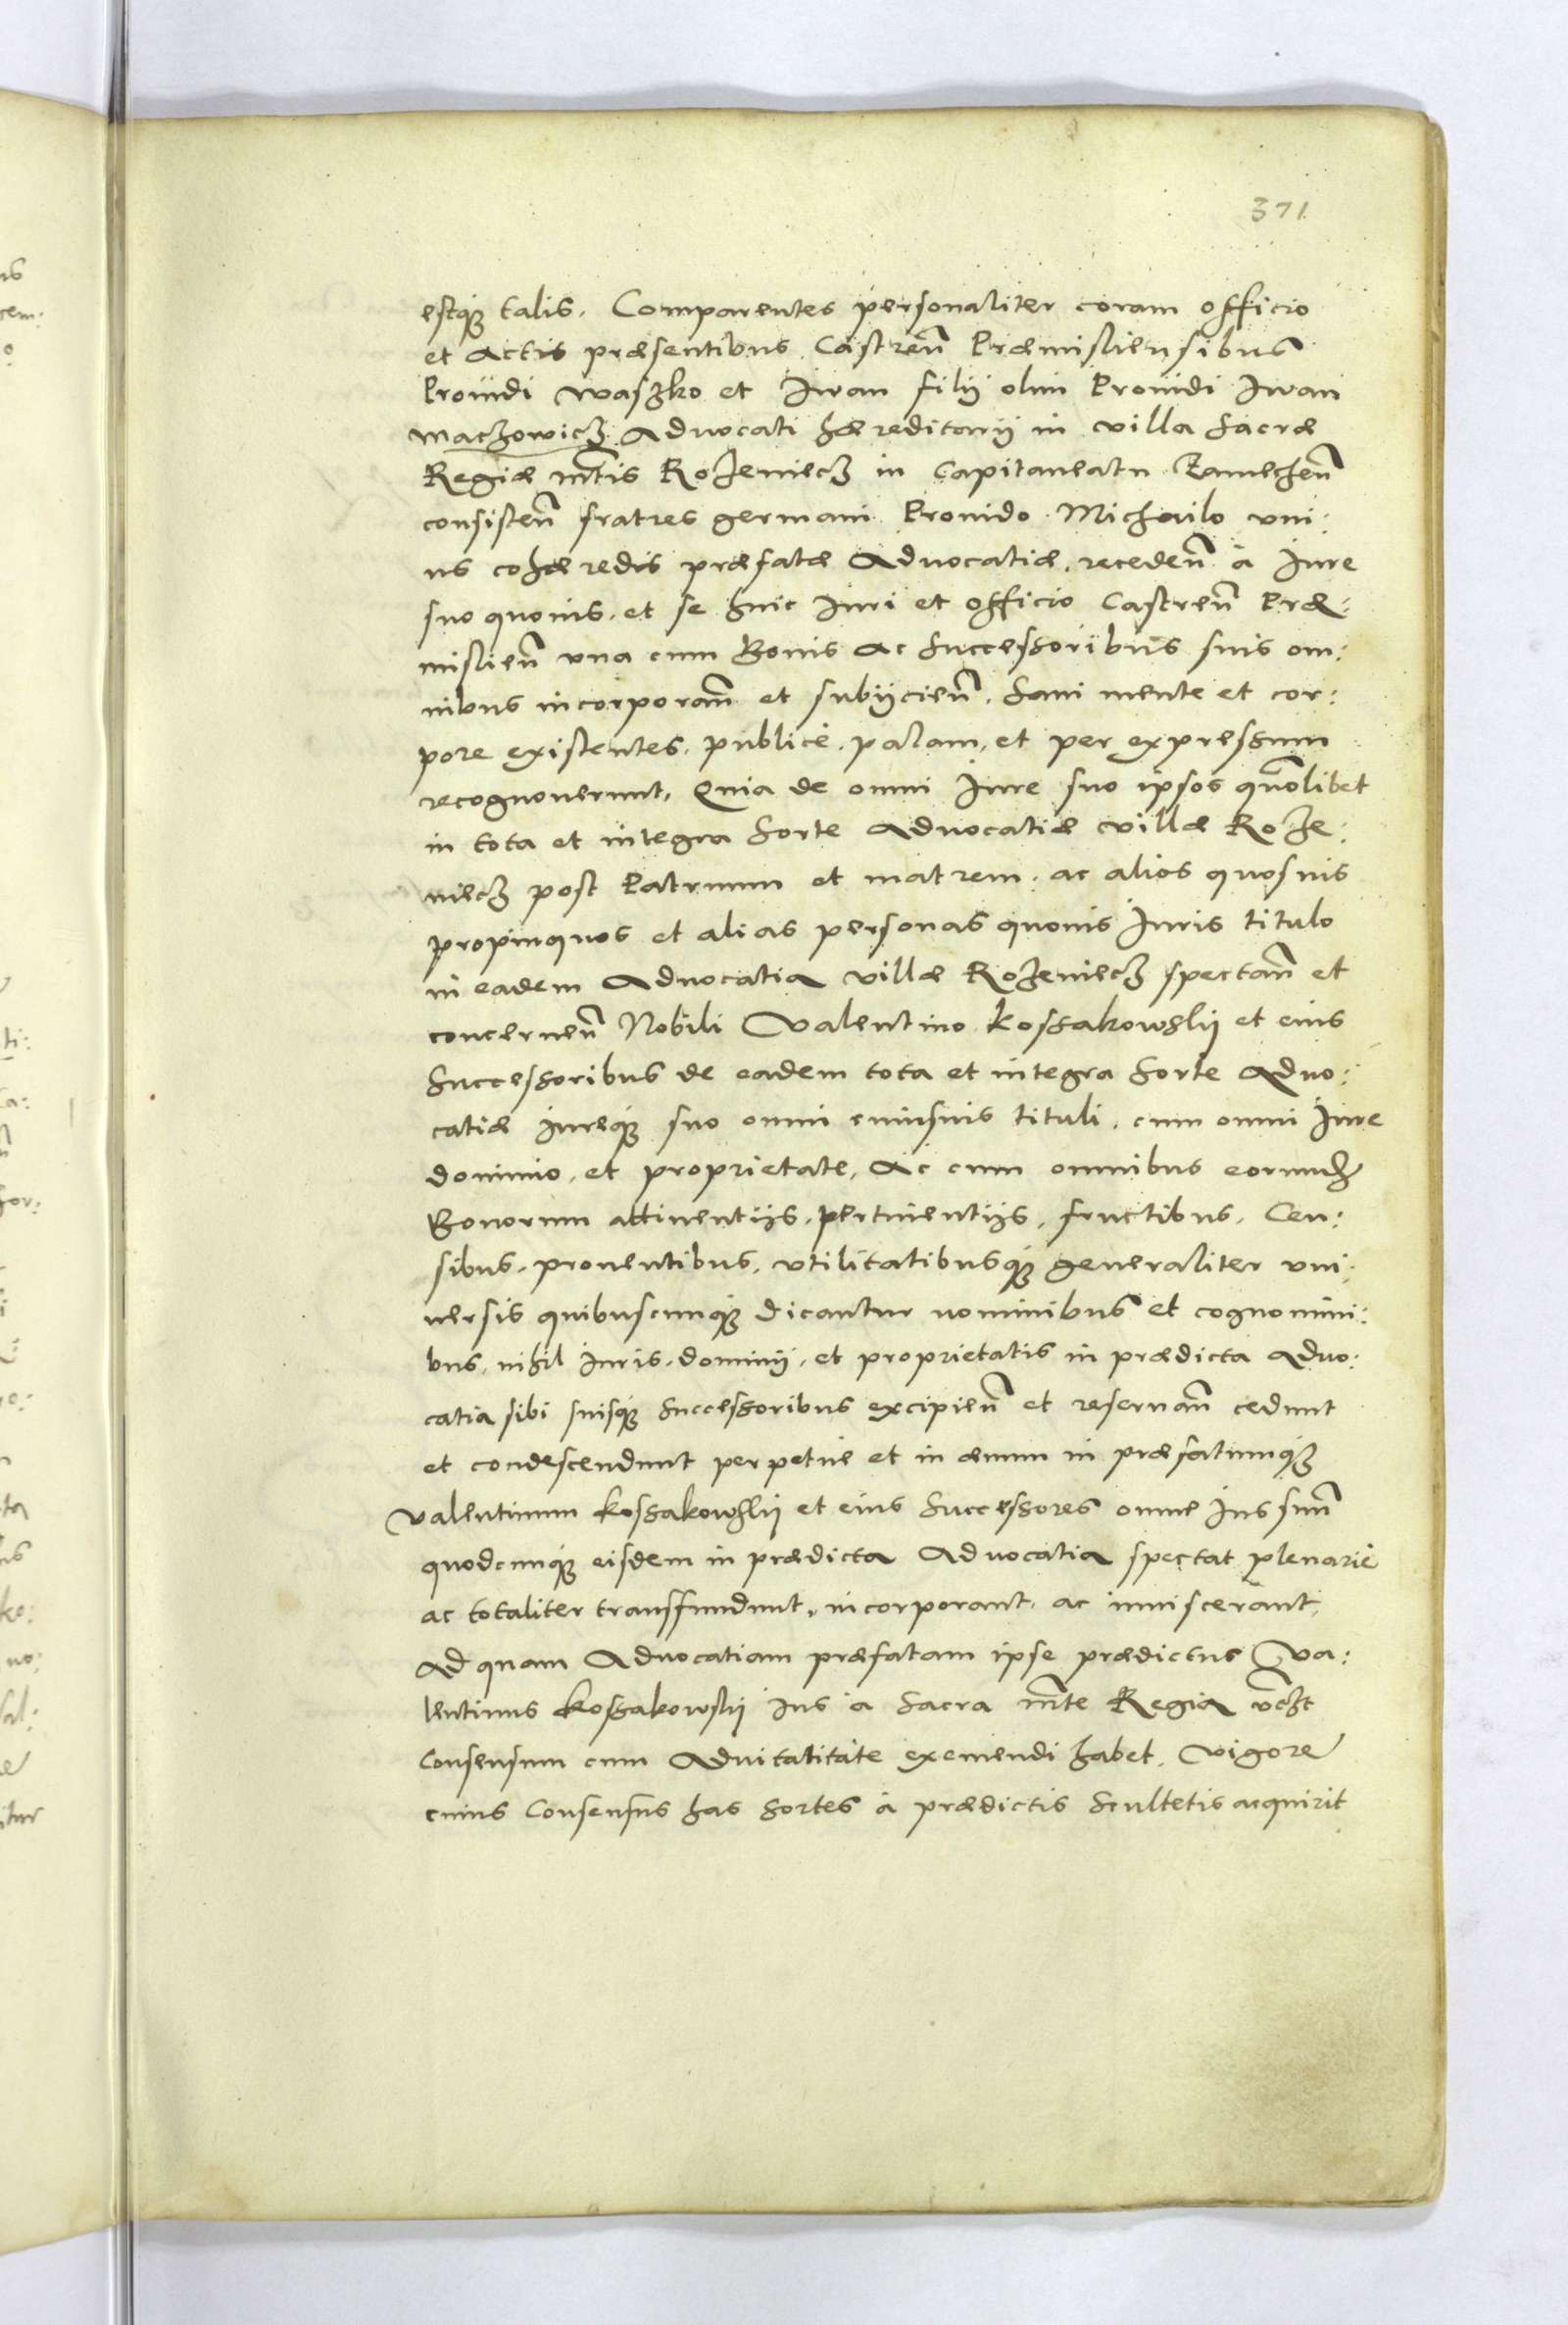 371
estq₃ talis. Comparentes personaliter coram officio
et Actis præsentibus Castreñ Præmisliensibus
Prouidi Waszko et Iwan filij olim Prouidi Iwan
Maczowicz Aduocati hæreditarij in villa Sacræ
Regiæ Mtis Rozeniecz in Capitaneatu
consisteñ fratres germani Prouido Michailo vni:
us cohæredis præfatæ Aduocatiæ, recedeñ à Iure
suo quouis, et se huic Iuri et officio Castreñ Præ:
mislieñ vna cum Bonis ac Successoribus suis om:
nibus incorporañ et subijcieñ. Sani mente et cor:
pore existentes, publicè, palam, et per expressum
recognouerunt, Quia de omni Iure suo ipsos quolibet
in tota et integra Sorte Aduocatiæ villæ Roze:
niecz post Patruum et matrem, ac alios quosuis
propinquos et alias personas quouis Iuris titulo
in eadem Aduocatia villæ Rozeniecz spectañ et
concerneñ Nobili Valentino Kossakowskij et eius
Successoribus de eadem tota et integra Sorte Aduo:
catiæ iureq₃ suo omni cuiusuis tituli, cum omni Iure
dominio, et proprietate, Ac cum omnibus eorund
Bonorum attinentijs, pertinentijs, fructibus, Cen:
sibus, prouentibus, vtilitatibusq₃ generaliter vni:
uersis quibuscunq₃ dicantur nominibus et cognomini:
bus, nihil iuris, dominij, et proprietatis in prædicta Aduo:
catia sibi suisq₃ Successoribus excipieñ et reseruañ cedunt
et condescendunt perpetuè et in æuum in præfatumq₃
Valentinum Kossakowskij et eius Successores omne Ius suũ
quodcunq₃ eisdem in prædicta Aduocatia spectat plenariè
ac totaliter transfundunt, incorporant, ac inuiscerant,
Ad quam Aduocatiam præfatam ipse prædictus Va:
lentinus Kossakowskij Ius à Sacra Mte Regia
Consensum cum Aduitalitate exemendi habet, vigore
cuius Consensus has Sortes à prædictis Scultetis acquirit